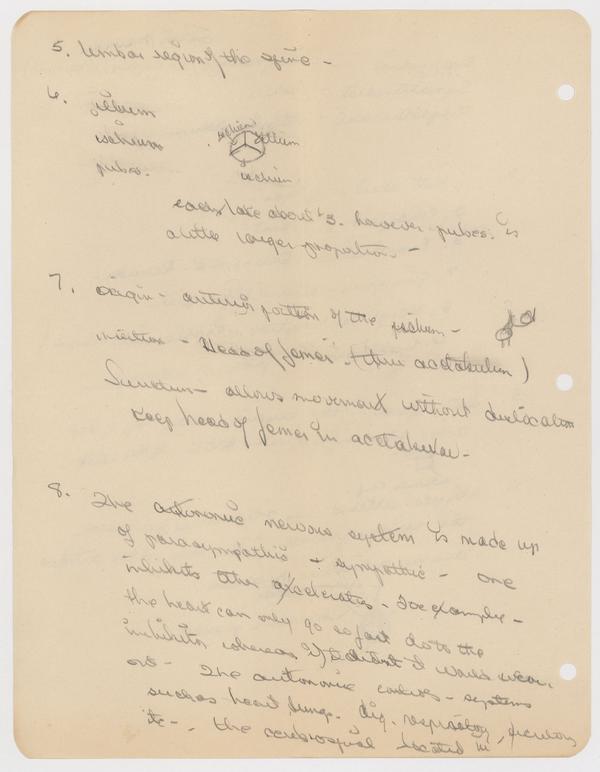 5. lumbar region of the spine -
6. illium
ischium
pubis.
illium
ischium
each take about 1/3. however pubis. is
a little larger proportion. -
7. origin - anterior portion of the ischium -
insertion - Head of femer. (thru acetabulum)
Function - allows movement without dislocation
keep head of femer in acetabulum -
8. The autonomic nervous system is made up
of parasympathic + sympathic - one
inhibits other axcelerates - For example -
the heart can only go so fast do to the
inhibitor whereas if it didn't it would wear
out - The autonomic controls - systems
such as heart, lungs. dig, respiratory,
etc -. the cerebrospinal located in